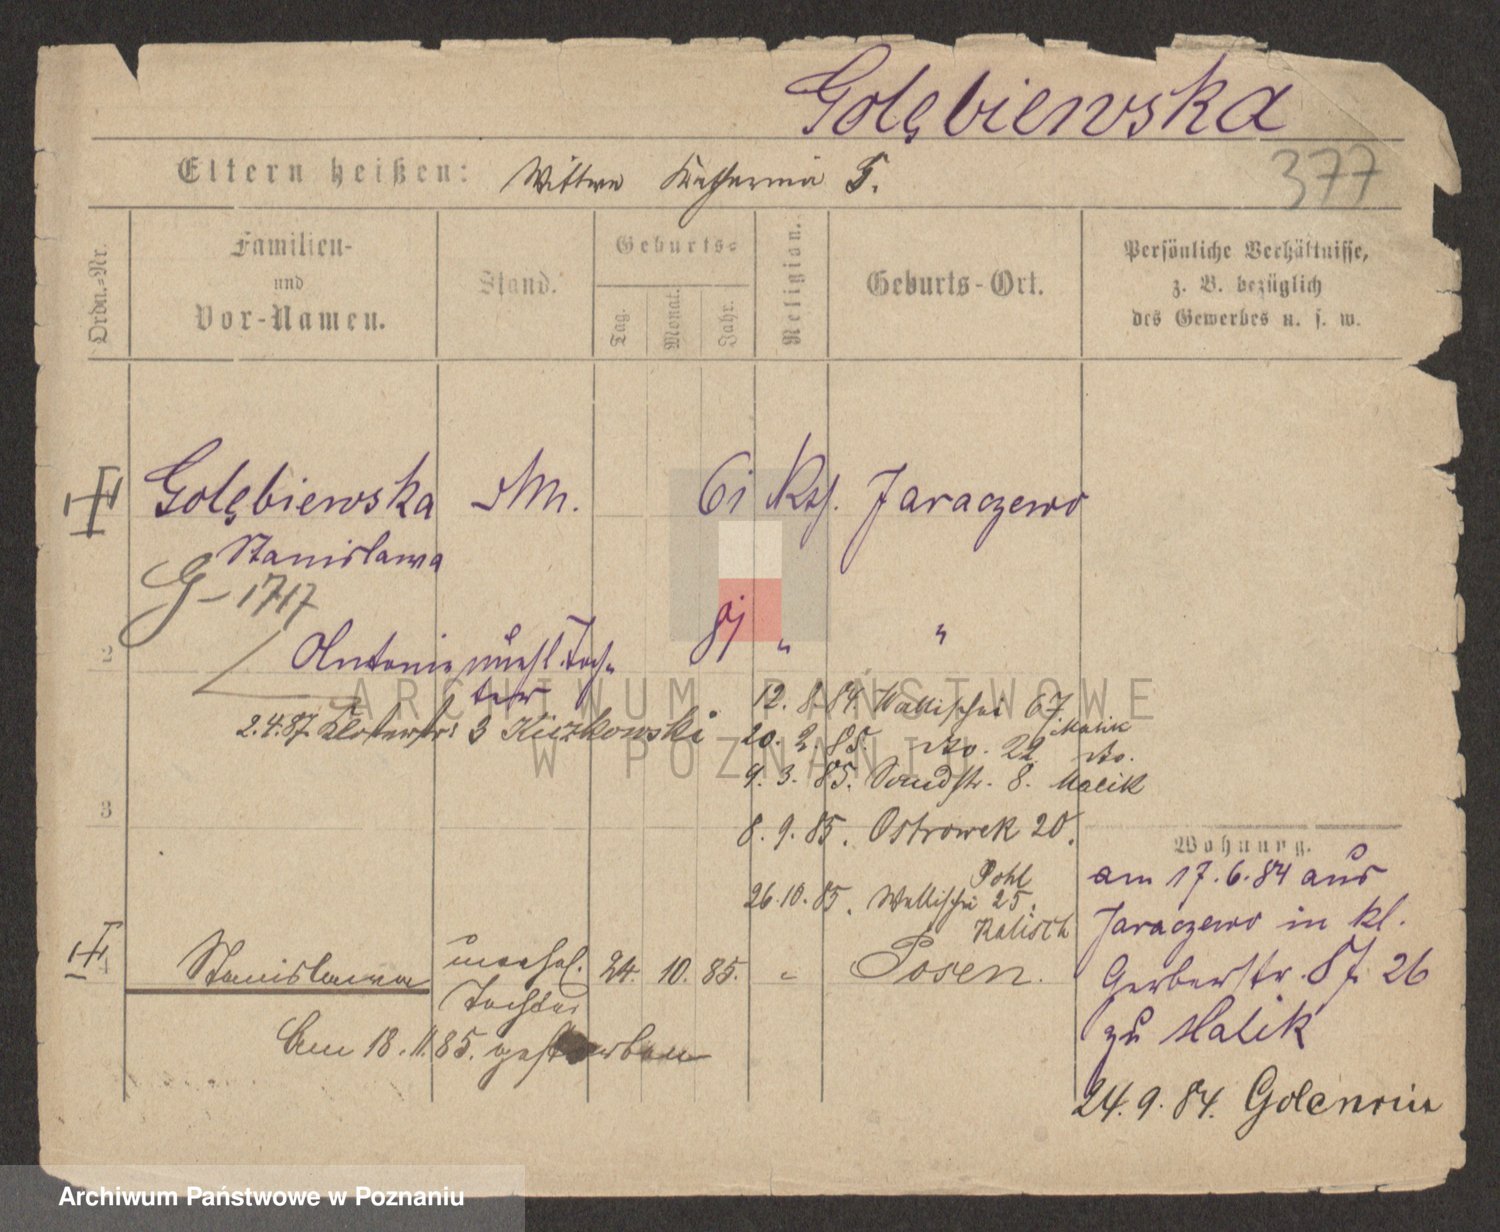 Golębiewska
Eltern heißen: Wittwe Katharina G.
377
Ordn.-Nr.
Familien-
und
Vor-Namen.
Stand.
Geburts-
Tag.
Monat.
Jahr.
Religion.
Geburts-Ort.
Persönliche Verhältnisse,
z. B. bezüglich
des Gewerbes u. s. w.
Golębiewska
Stanislawa
61
Jaraczewo
G-1717
2
Antonie unehl. Toch-
ter
81 " "
2.4.87. 3 Kiczkowski
12. 8. 84. Wallischei 67
Malik
20. 2. 85. dto. 22 dto.
9. 3. 85. Sandstr. 8. Malik
3
8. 9. 85. Ostrowek 20.
Pohl
26.10.85. Wallischei 25.
Kalisch
Wohnung.
am 17.6.84 aus
Jaraczewo in kl.
Gerberstr. 87 26
zu Malik
24. 9. 84. Golenrin
4
Stanislawa
unehel.
Tochter
24. 10. 85. " Posen.
Am 18.11.85. gestorben
ARCHIWUM PAŃSTWOWE
W POZNANIU
Archiwum Państwowe w Poznaniu